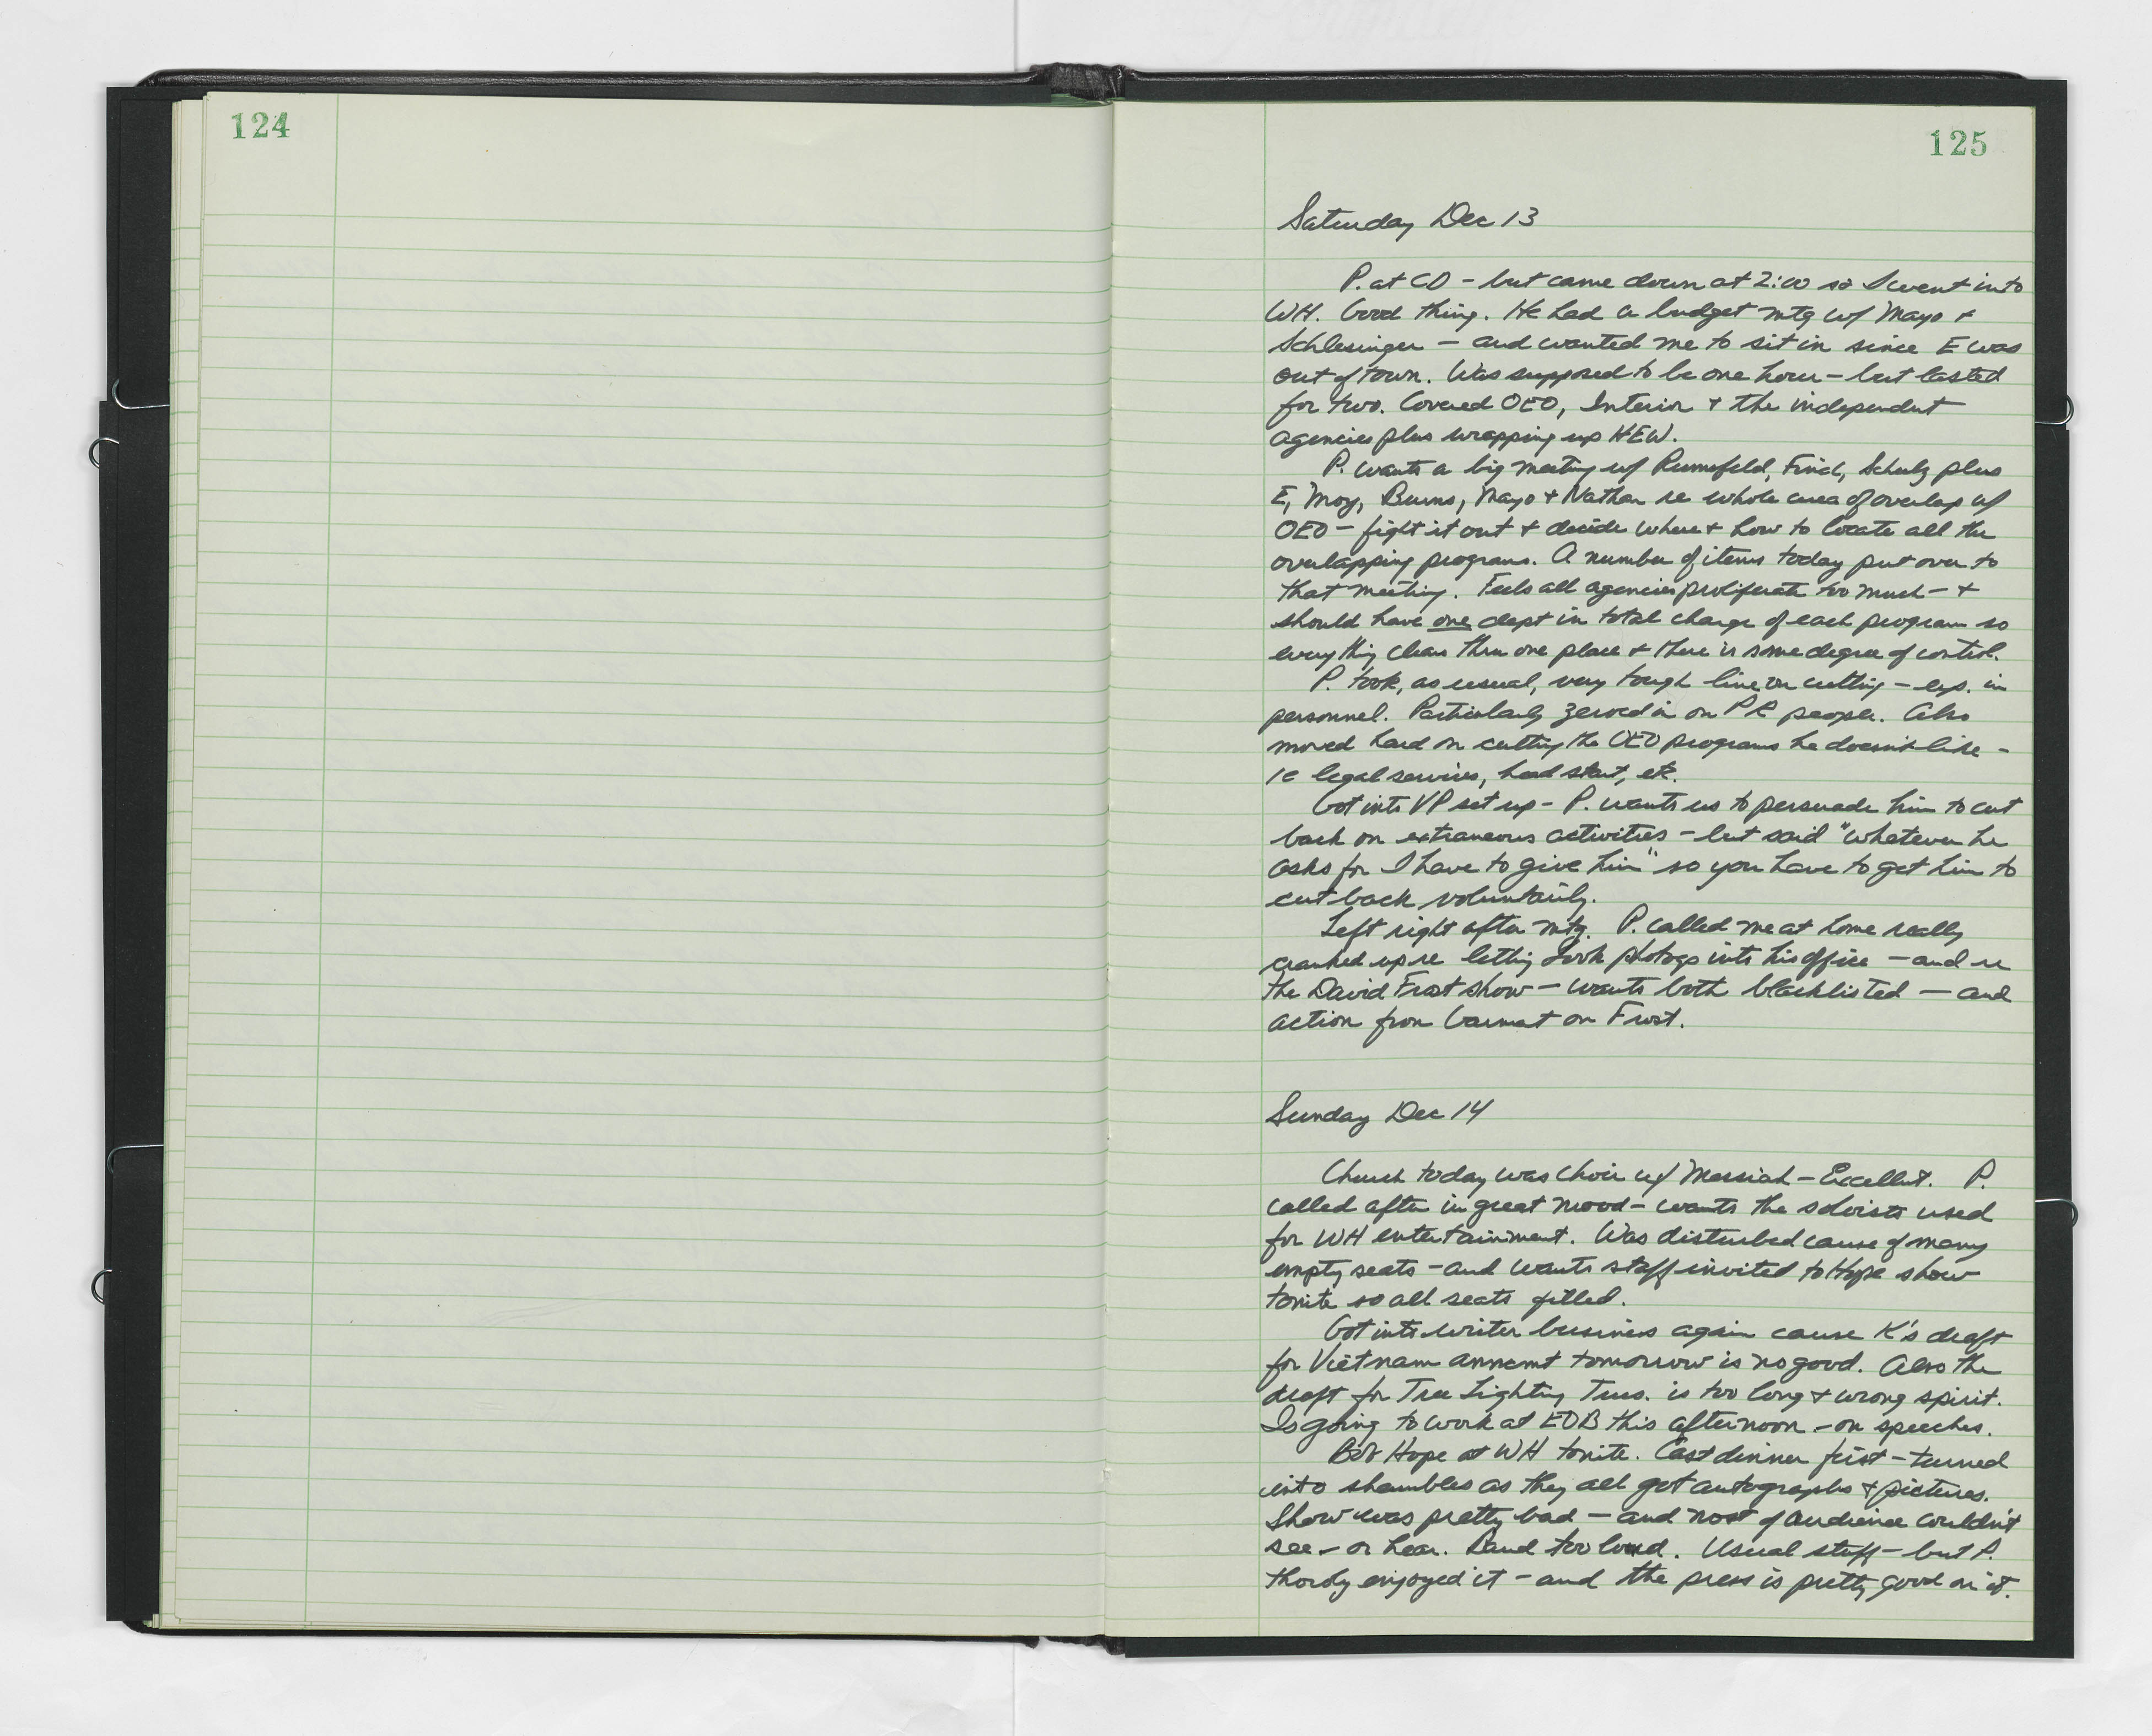 124
125
Saturday Dec 13
P. at CD - but came down at 2:00 so I went into
WH. Good thing. He had a budget mtg w/ Mayo +
Schlesinger - and wanted me to sit in since E was
out of town. Was supposed to be one hour - but lasted
for two. Covered OEO, Interior + the independent
agencies plus wrapping up HEW.
P. wants a big meeting w/ Rumsfeld, Finch, Schulz plus
E, Moy, Burns, Mayo + Nathan re whole area of overlap w/
OEO - fight it out + decide where + how to locate all the
overlapping programs. A number of items today put over to
that meeting. Feels all agencies proliferate too much - +
should have one dept in total charge of each program so
everything clears thru one place + there is some degree of control.
P. took, as usual, very tough line on cutting - esp. in
personnel. Particularly zeroed in on PR people. Also
moved hard on cutting the OEO programs he doesn't like -
ie legal services, head start, etc.
Got into VP set up - P. wants us to persuade him to cut
back on extraneous activities - but said "whatever he
asks for I have to give him" so you have to get him to
cut back voluntarily.
Left right after mtg. P. called me at home really
cranked up re letting Look photogs into his office - and re
the David Frost show - wants both blacklisted - and
action from Garment on Frost.
Sunday Dec 14
Church today was choir w/ Messiah - Excellent. P.
called after in great mood - wants the soloists used
for WH entertainment. Was disturbed cause of many
empty seats - and wants staff invited to Hope show
tonite so all seats filled.
Got into writer business again cause K's draft
for Vietnam anncmt tomorrow is no good. Also the
draft for Tree Lighting Tues. is too long + wrong spirit.
Is going to work at EOB this afternoon - on speeches.
Bob Hope at WH tonite. Cast dinner first - turned
into shambles as they all got autographs + pictures.
Show was pretty bad - and most of audience couldn't
see - or hear. Band too loud. Usual stuff - but P.
thoroly enjoyed it - and the press is pretty good on it.